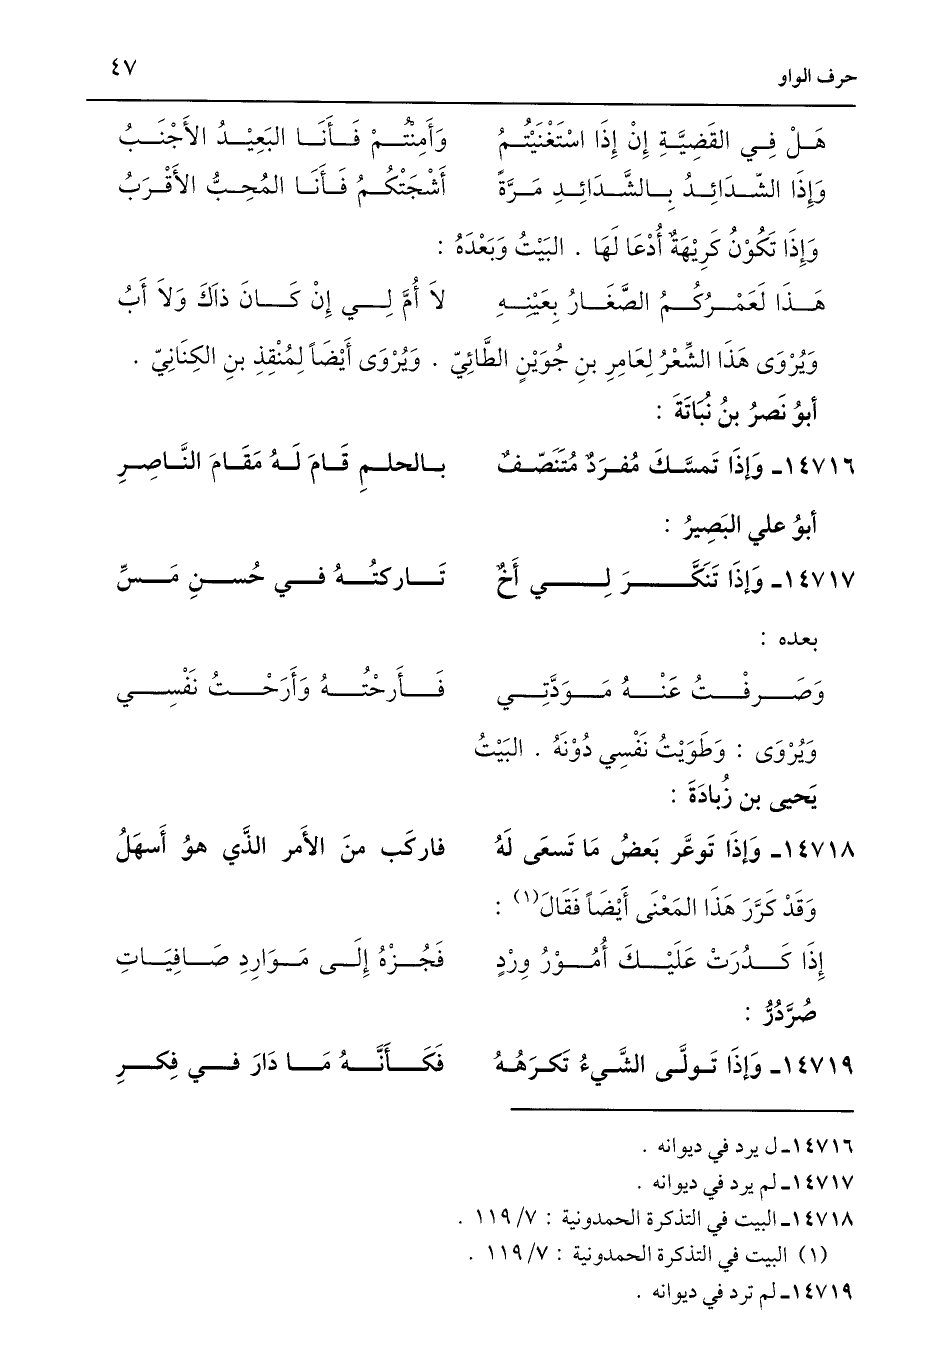 حرف الواو ٤٧
هَلْ فِي القَضِيَّةِ إِنْ إِذَا اسْتَغْنَيْتُمُ وَأَمِنْتُمْ فَأَنَا البَعِيْدُ الأَجْنَبُ
وَإِذَا الشَّدَائِدُ بِالشَّدَائِدِ مَرَّةً أَشْجَتْكُمُ فَأَنَا المُحِبُّ الأَقْرَبُ
وَإِذَا تَكُوْنُ كَرِيْهَةٌ أُدْعَا لَهَا . البَيْتُ وَبَعْدَهُ :
هَذَا لَعَمْرُكُمُ الصَّغَارُ بِعَيْنِهِ لاَ أُمَّ لِي إِنْ كَانَ ذاكَ وَلاَ أَبُ
وَيُرْوَى هَذَا الشِّعْرُ لِعَامِرِ بنِ جُوَيْنٍ الطَّائِيّ . وَيُرْوَى أَيْضَاً لِمُنْقِذِ بنِ الكِنَانِيّ .
أبوُ نَصرُ بنُ نُبَاتَةَ :
١٤٧١٦ـ وَإِذَا تَمسَّكَ مُفرَدٌ مُتَنَصِّفٌ بالحلمِ قَامَ لَهُ مَقَامَ النَّاصِرِ
أبوُ علي البَصِيرُ :
١٤٧١٧ـ وَإِذَا تَنَكَّرَ لِي أَخٌ تَاركتُهُ في حُسنِ مَسِّ
بعده :
وَصَرفْتُ عَنْهُ مَوَدَّتِي فَأَرحْتُهُ وَأَرَحْتُ نَفْسِي
وَيُرْوَى : وَطَوَيْتُ نَفْسِي دُوْنَهُ . البَيْتُ
يَحيى بن زُبادَةَ :
١٤٧١٨ـ وَإِذَا تَوعَّر بَعضُ مَا تَسعَى لَهُ فاركَب منَ الأَمر الذَّي هوُ أَسهَلُ
وَقَدْ كَرَّرَ هَذَا المَعْنَى أَيْضَاً فَقَالَ(١) :
إِذَا كَدُرَتْ عَلَيْكَ أُمُوْرُ وِرْدٍ فَجُزْهُ إِلَى مَوَارِدِ صَافِيَاتِ
صُرَّدُرُّ :
١٤٧١٩ـ وَإِذَا تَولَّى الشَّيءُ تَكرَهُهُ فَكَأَنَّهُ مَا دَارَ في فِكرِ
١٤٧١٦ـ ل يرد في ديوانه .
١٤٧١٧ـ لم يرد في ديوانه .
١٤٧١٨ـ البيت في التذكرة الحمدونية : ٧/ ١١٩ .
(١) البيت في التذكرة الحمدونية : ٧/ ١١٩ .
١٤٧١٩ـ لم ترد في ديوانه .